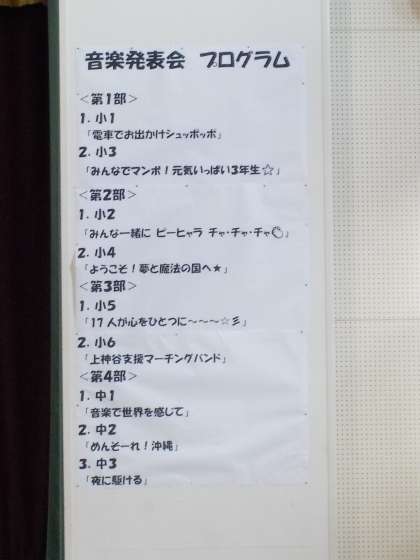 音楽発表会 プログラム
＜第1部＞
1. 小1
「電車でお出かけシュッポッポ」
2. 小3
「みんなでマンボ！元気いっぱい3年生☆」
＜第2部＞
1. 小2
「みんな一緒に ピーヒャラ チャ・チャ・チャ👏」
2. 小4
「ようこそ！夢と魔法の国へ★」
＜第3部＞
1. 小5
「17人が心をひとつに～～～☆彡」
2. 小6
「上神谷支援マーチングバンド」
＜第4部＞
1. 中1
「音楽で世界を感じて」
2. 中2
「めんそーれ！沖縄」
3. 中3
「夜に駆ける」